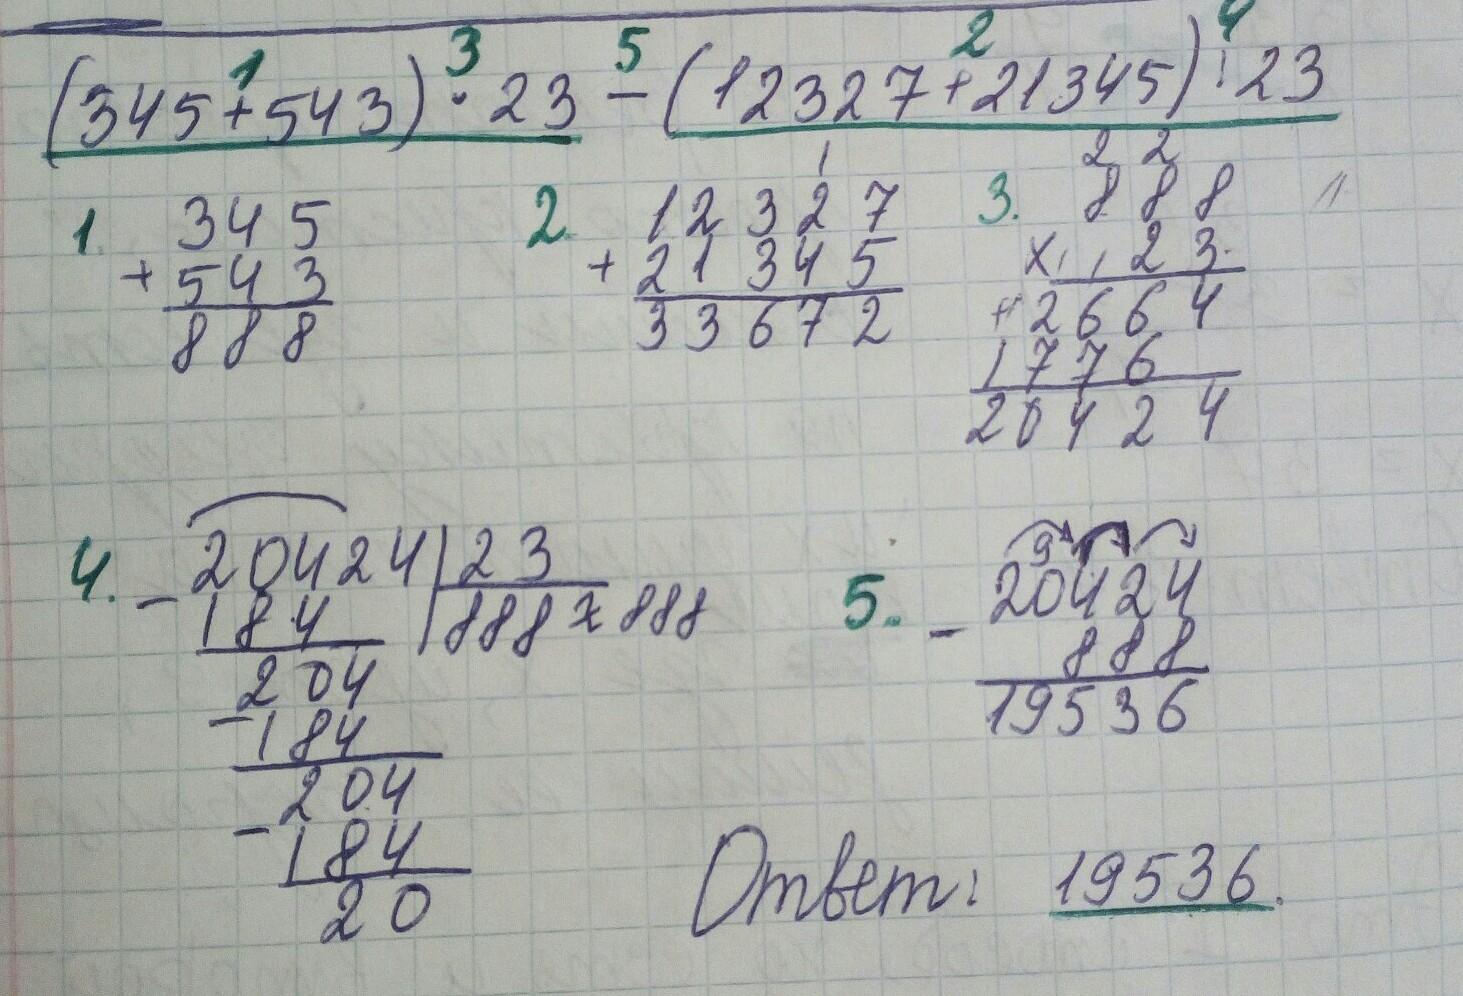 1 3 5 2 4
(345+543) · 23 - (12327+21345) : 23
1. 345
+ 543
888
1
2. 12327
+ 21345
33672
2 2
3. 888
x 23
+ 2664
1776
20424
4. - 20424 | 23
184 888 ≈ 888
204
- 184
204
- 184
20
9
5. - 20424
888
19536
Ответ: 19536.